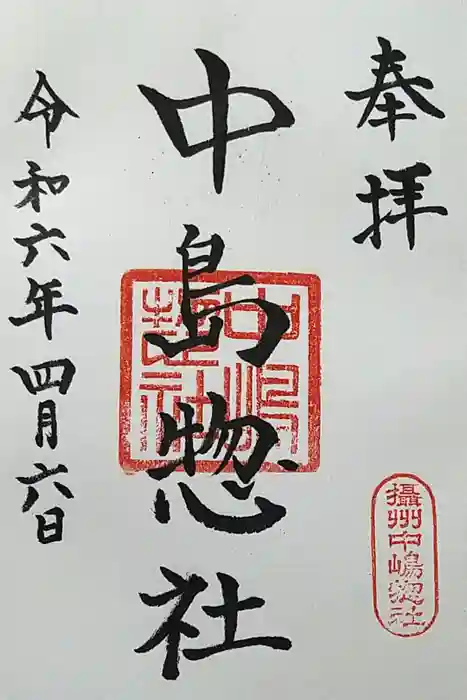 奉拝
中島惣社
中嶋惣社
令和六年四月六日
攝州中嶋惣社